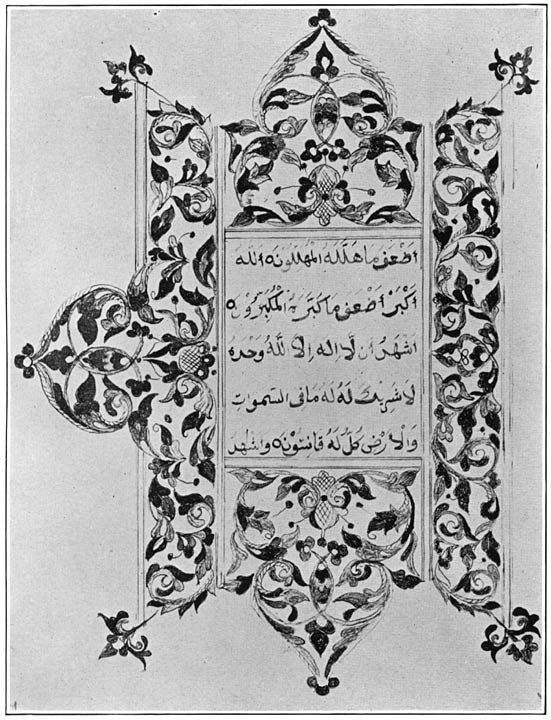 اَضْعَفَ مَا هَلَّلَهُ المُهَلِّلُونَ ه اللهُ
اَكْبَرُ اَضْعَفَ مَا كَبَّرَهُ المُكَبِّرُونَ ه
اَشْهَدُ اَنْ لَا اِلٰهَ اِلَّا اللهُ وَحْدَهُ
لَا شَرِيكَ لَهُ لَهُ مَا فِى السَّمٰوَاتِ
وَالْاَرْضِ كُلٌّ لَهُ قَانِتُونَ ه وَاَشْهَدُ